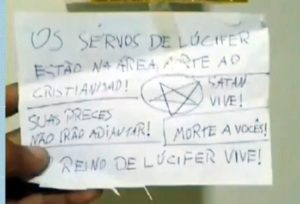 OS SERVOS DE LÚCIFER
ESTÃO NA ÁREA, MORTE AO
CRISTIANISMO!
SATAN
VIVE!
SUAS PRECES
NÃO IRÃO ADIANTAR!
MORTE A VOCÊS!
O REINO DE LÚCIFER VIVE!